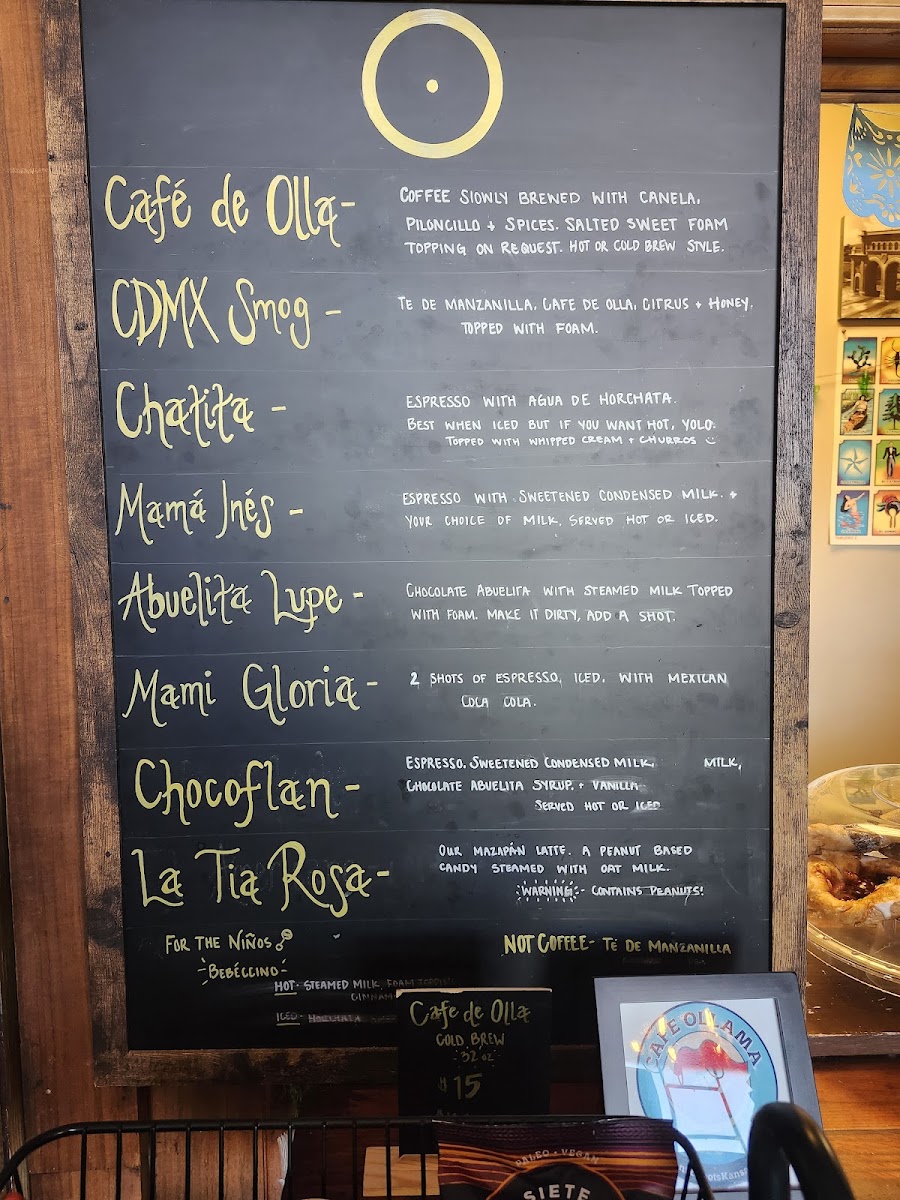 Café de Olla-
COFFEE SLOWLY BREWED WITH CANELA,
PILONCILLO + SPICES. SALTED SWEET FOAM
TOPPING ON REQUEST. HOT OR COLD BREW STYLE.
CDMX Smog -
TE DE MANZANILLA, CAFE DE OLLA, CITRUS + HONEY,
TOPPED WITH FOAM.
Chatita -
ESPRESSO WITH AGUA DE HORCHATA.
BEST WHEN ICED BUT IF YOU WANT HOT, YOLO.
TOPPED WITH WHIPPED CREAM + CHURROS
Mamá Inés -
ESPRESSO WITH SWEETENED CONDENSED MILK. +
YOUR CHOICE OF MILK, SERVED HOT OR ICED.
Abuelita Lupe -
CHOCOLATE ABUELITA WITH STEAMED MILK TOPPED
WITH FOAM. MAKE IT DIRTY, ADD A SHOT.
Mami Gloria -
2 SHOTS OF ESPRESSO, ICED, WITH MEXICAN
COCA COLA.
Chocoflan -
ESPRESSO, SWEETENED CONDENSED MILK, MILK,
CHOCOLATE ABUELITA SYRUP, + VANILLA
SERVED HOT OR ICED
La Tia Rosa-
OUR MAZAPÁN LATTE. A PEANUT BASED
CANDY STEAMED WITH OAT MILK.
WARNING:- CONTAINS PEANUTS!
FOR THE NIÑOS
BEBÉCCINO
HOT- STEAMED MILK, FOAM
ICED- HORCHATA
NOT COFFEE- TÉ DE MANZANILLA
Cafe de Olla
COLD BREW
32 oz
$15
CAFÉ OLLAMA
PALEO • VEGAN
SIETE